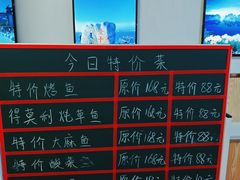 今日特价菜
特价烤鱼 原价168元 特价88元
得莫利炖草鱼 原价168元 特价88元
特价大麻鱼 原价168元 特价88元
特价酸菜 原价168元 特价88元